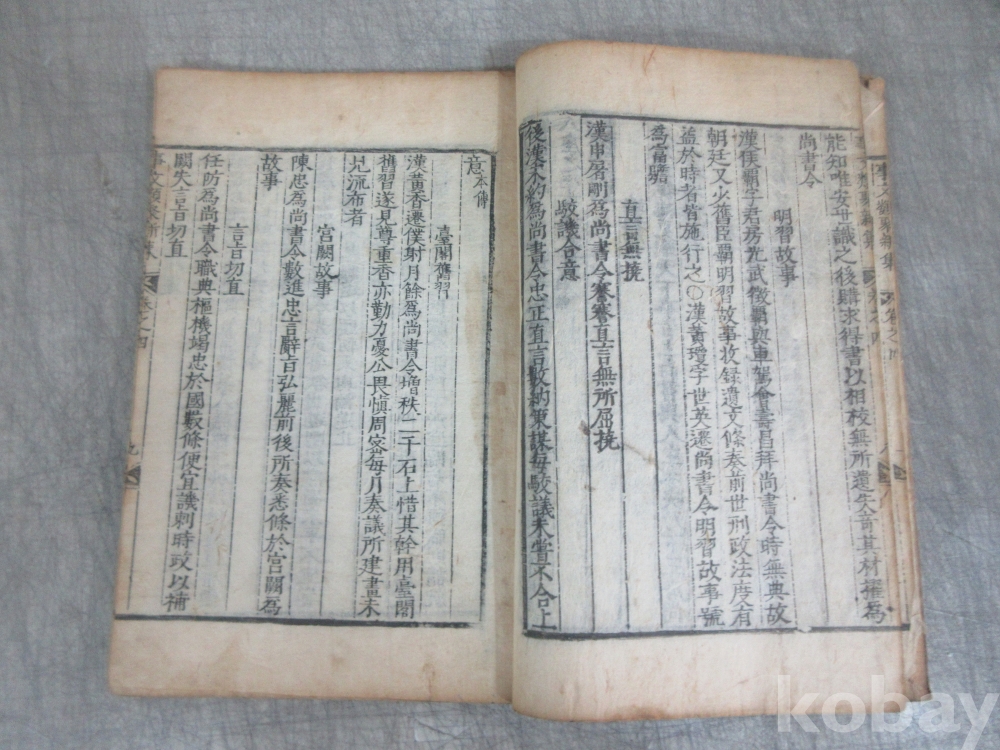 能知唯安世識之後購求得書以相校無所遺失奇其材擢為
尚書令
明習故事
漢侯霸字君房光武徵霸與車駕會壽昌拜尚書令時無典故
朝廷又少舊臣霸明習故事收録遺文條奏前世刑政法度有
益於時者皆施行之○漢黃瓊字世英遷尚書令明習故事號
為富贍
直言無撓
漢申屠剛為尚書令謇謇直言無所屈撓
駮議合意
後漢 為尚書令忠正直言數納東謀每駮議未嘗不合上
意本傳
臺閣舊習
漢黃香遷僕射月餘為尚書令增秩二千石上惜其幹用臺閣
舊習遂見尊重香亦勤力憂公畏慎周密每月奏議所建畫未
流布者
宮闕故事
陳忠為尚書令數進忠言辭旨弘麗前後所奏悉條於宮闕為
故事
言旨切直
任防為尚書令職典樞機竭忠於國數條便宜議刺時政以補
闕失言旨切直
事文類聚新集 卷之四 九
kobay